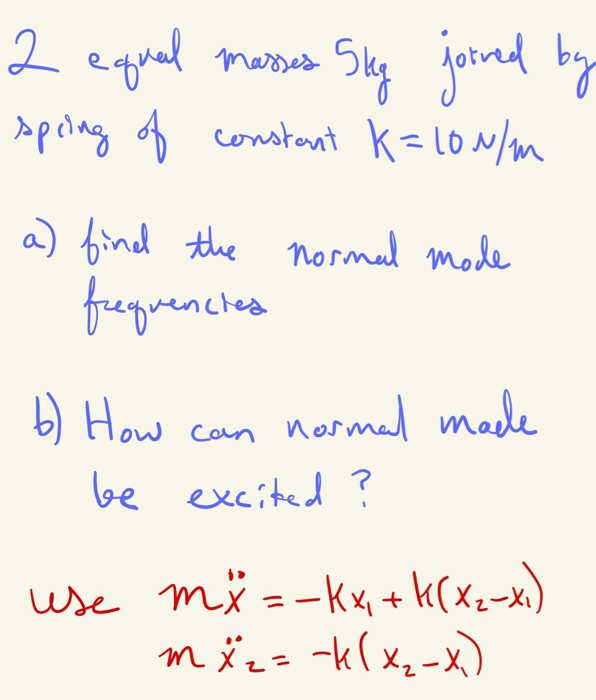 2 equal masses 5kg joined by
spring of constant K = 10 N/m
a) find the normal mode
frequencies
b) How can normal mode
be excited ?
use mẍ = -Kx₁ + K(x₂-x₁)
m ẍ₂ = -k(x₂-x₁)